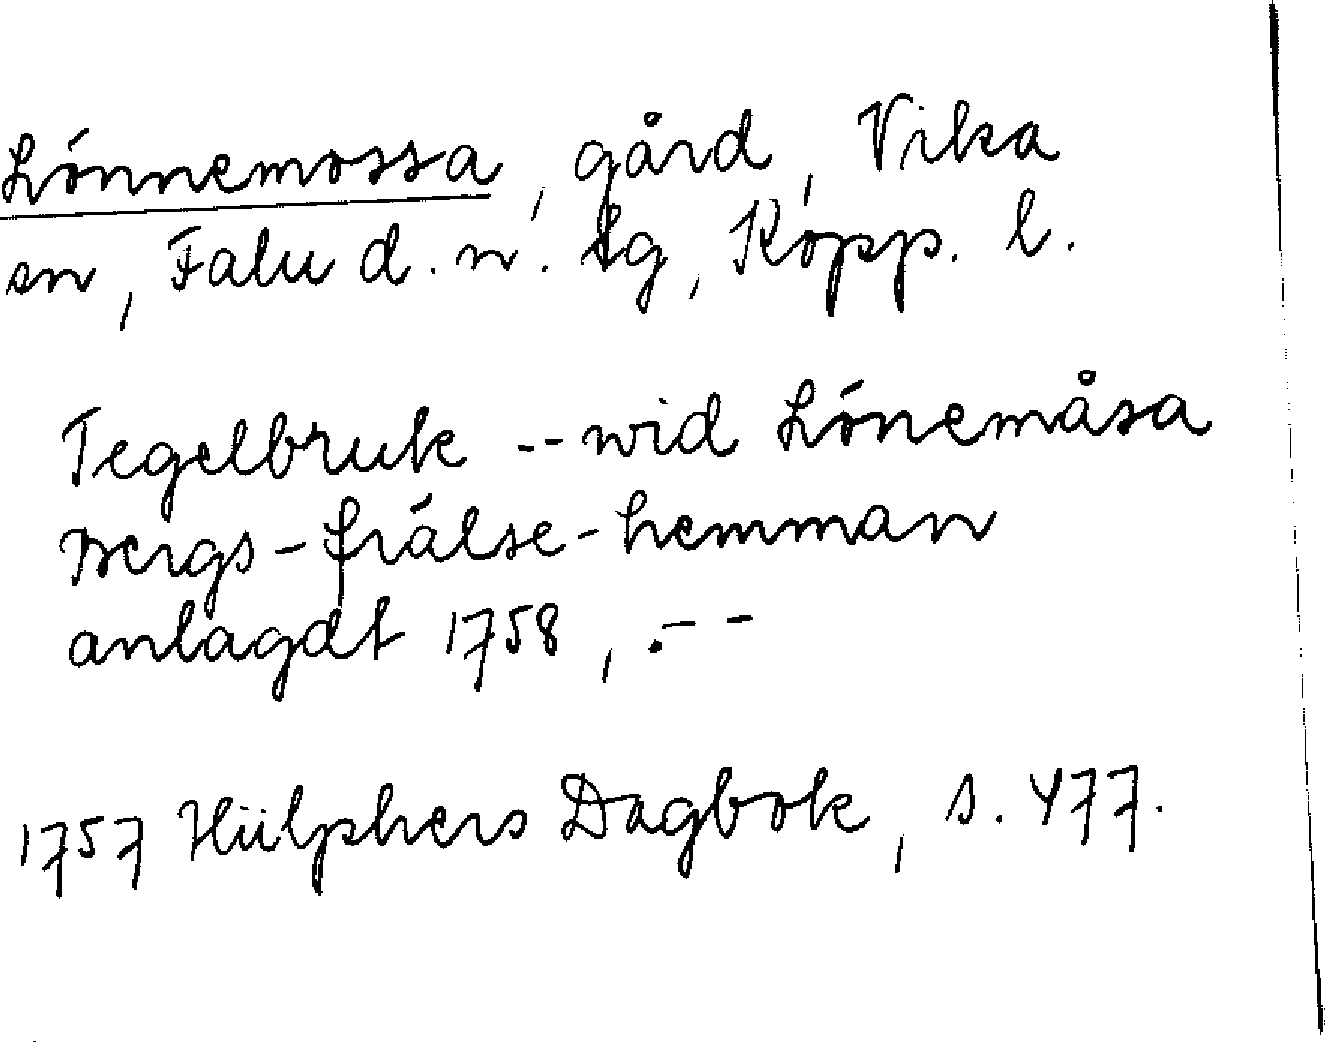 Lönnemossa, gård, Vika
sn, Falu d. n. tg, Kopp. l.
Tegelbruk -- wid Lönemåsa
Bergs-frälse-hemman
anlagdt 1758, .--
1757 Hülphers Dagbok, s. 477.